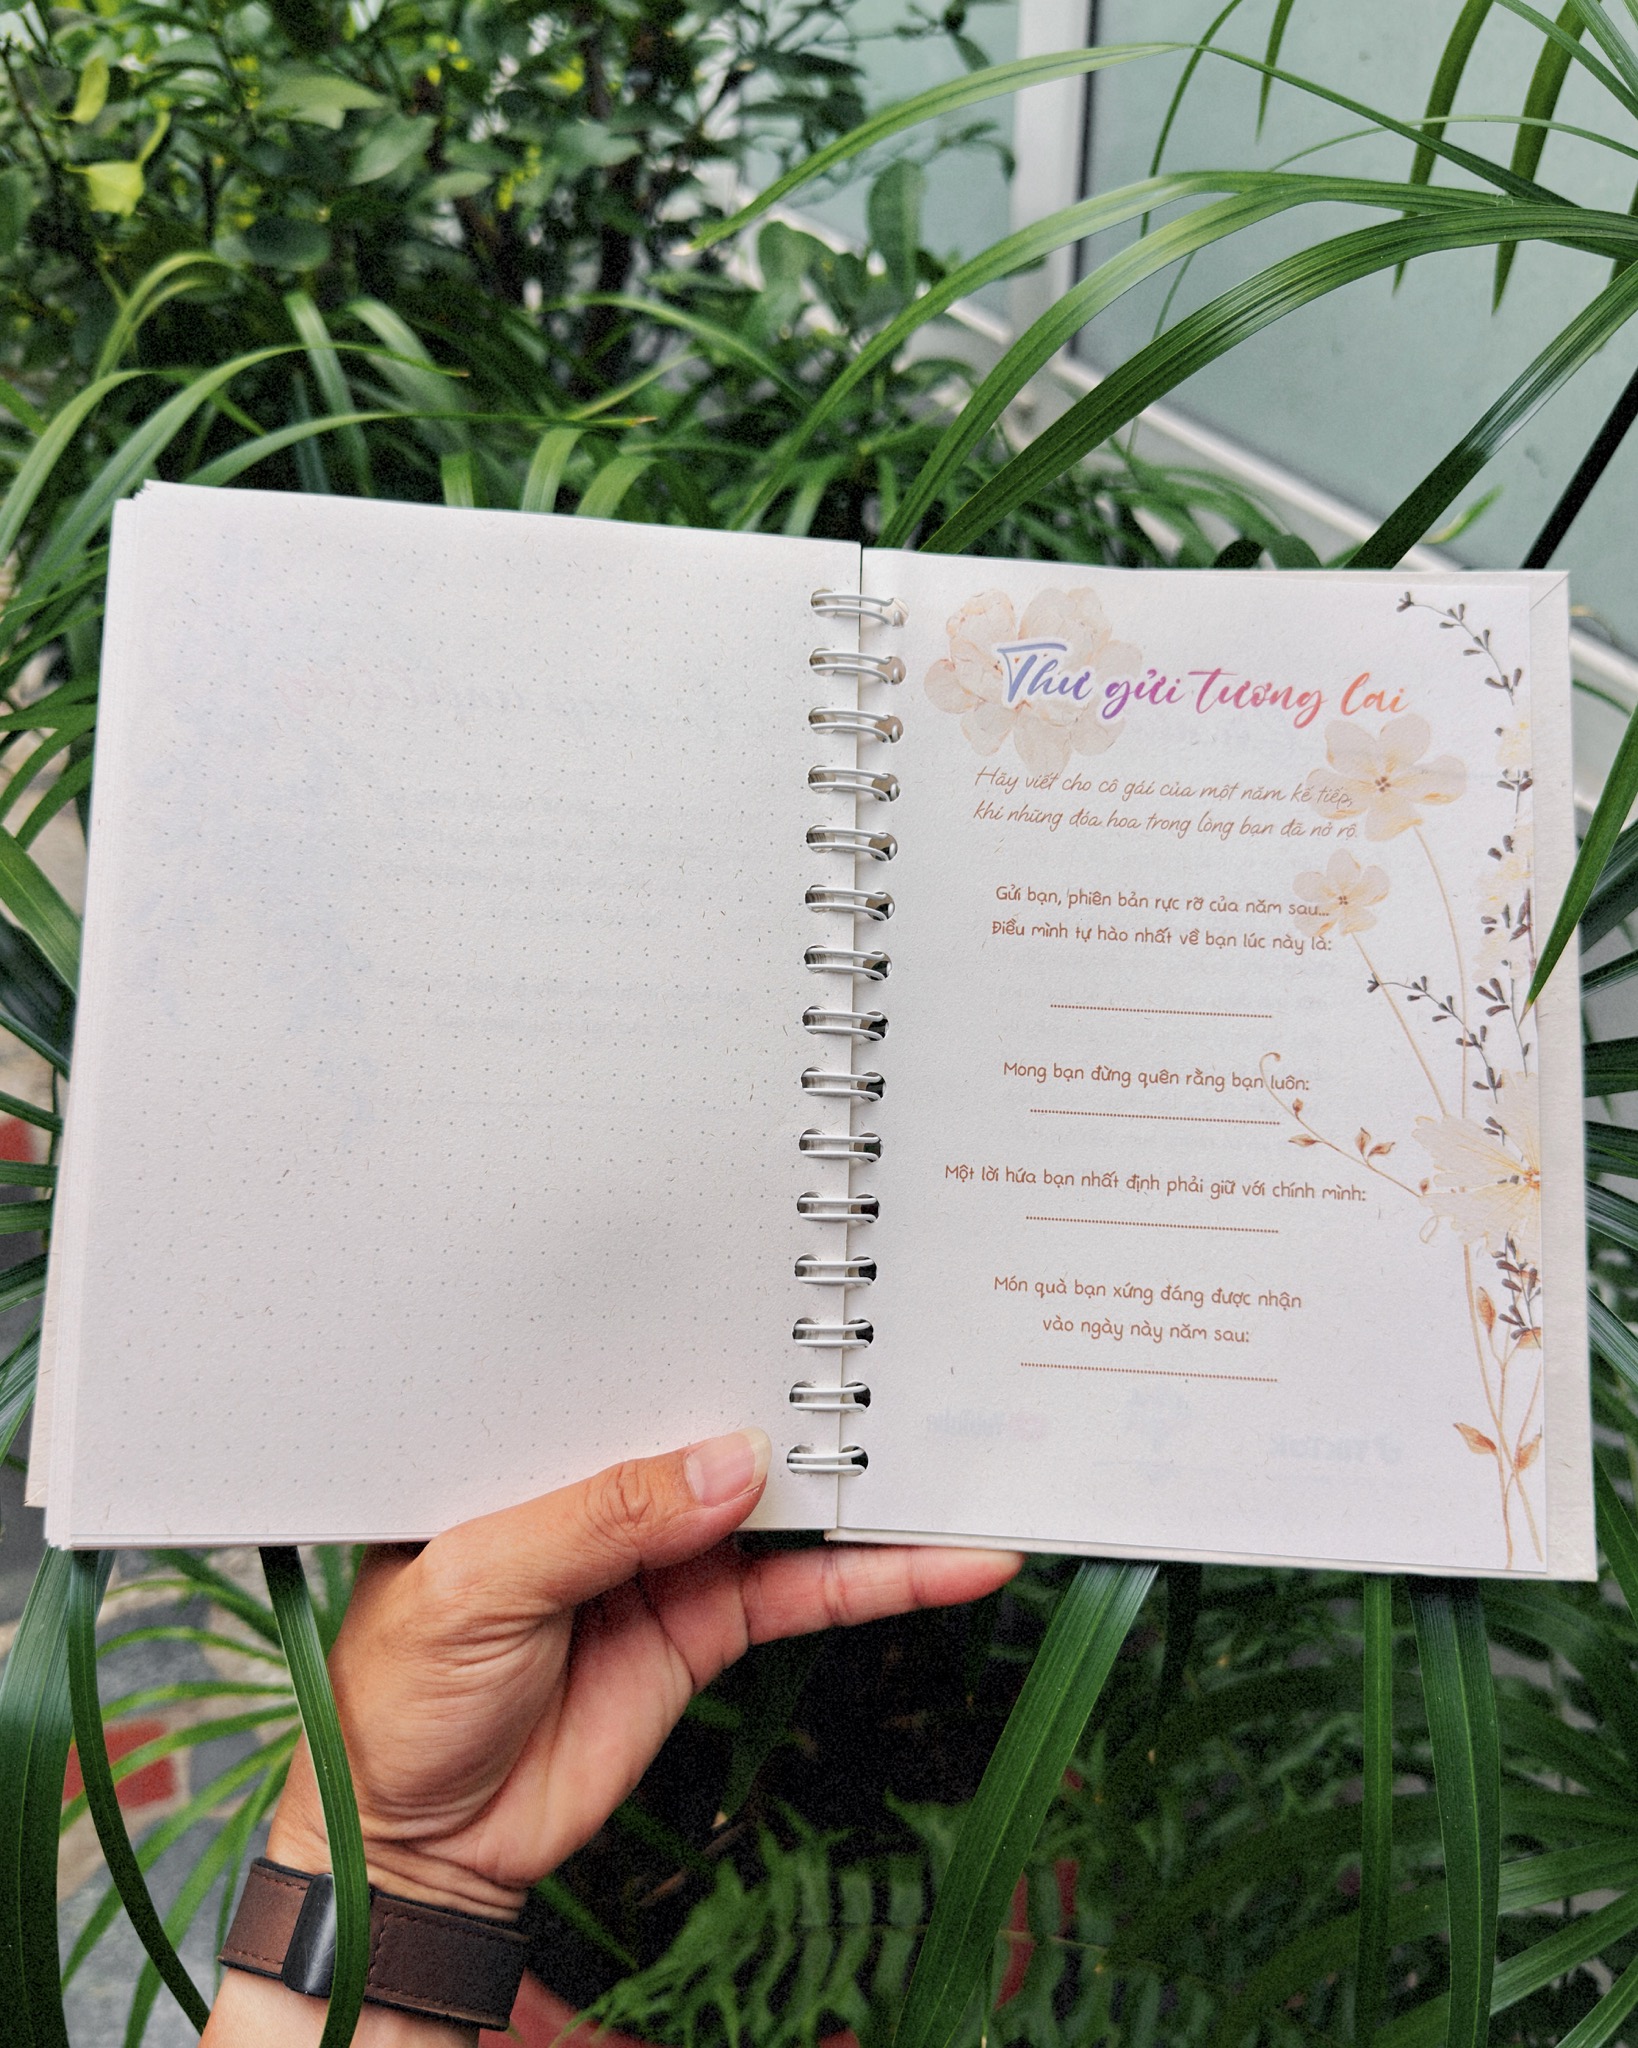 Thư gửi tương lai
Hãy viết cho cô gái của một năm kế tiếp,
khi những đóa hoa trong lòng bạn đã nở rộ.
Gửi bạn, phiên bản rực rỡ của năm sau...
Điều mình tự hào nhất về bạn lúc này là:
Mong bạn đừng quên rằng bạn luôn:
Một lời hứa bạn nhất định phải giữ với chính mình:
Món quà bạn xứng đáng được nhận
vào ngày này năm sau: